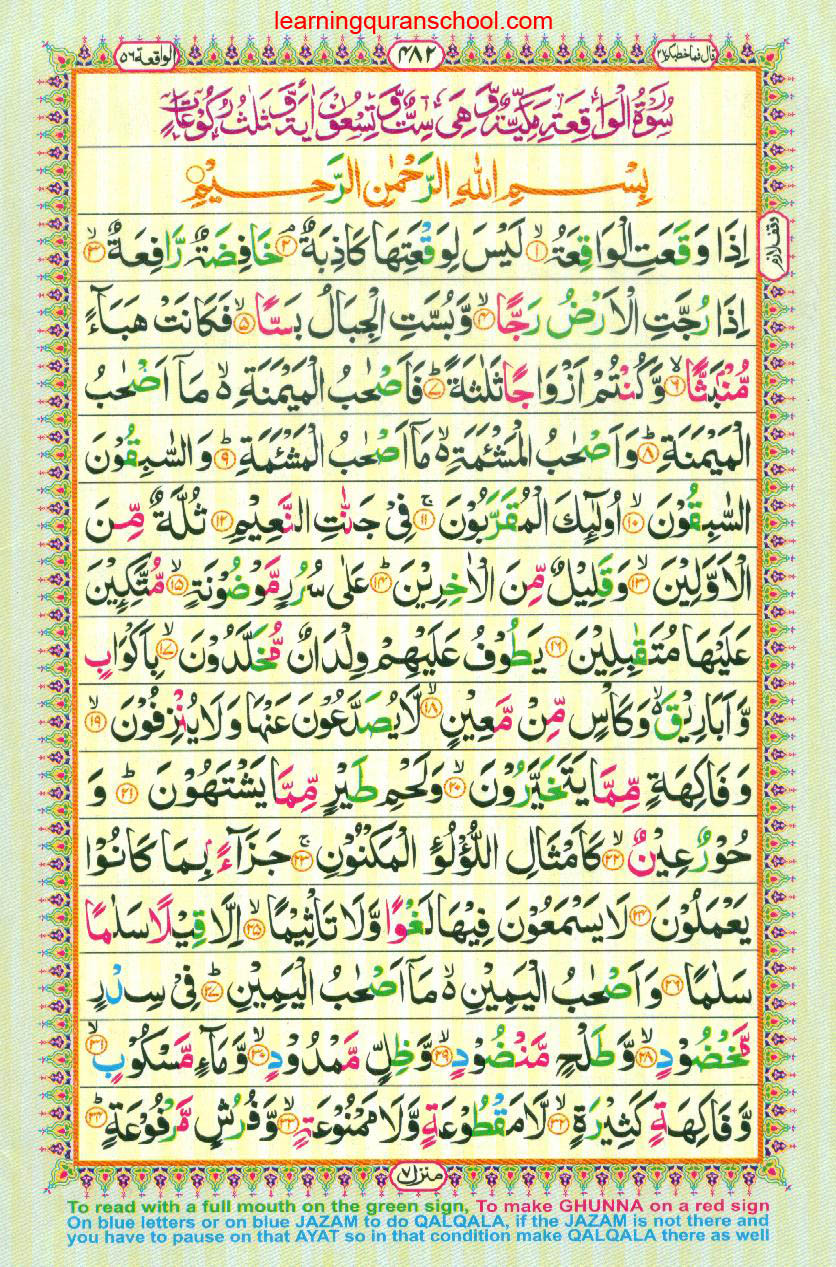 learningquranschool.com
قال فما خطبكم ٢٧
٤٨٢
الواقعة ٥٦
سُوْرَةُ الْوَاقِعَةِ مَكِّيَّةٌ وَّهِيَ سِتٌّ وَّتِسْعُوْنَ اٰيَةً وَّثَلٰثُ رُكُوْعَاتٍ
بِسْمِ اللهِ الرَّحْمٰنِ الرَّحِيْمِ
وقف لازم
اِذَا وَقَعَتِ الْوَاقِعَةُ ۙ﴿١﴾ لَيْسَ لِوَقْعَتِهَا كَاذِبَةٌ ۘ﴿٢﴾ خَافِضَةٌ رَّافِعَةٌ ۙ﴿٣﴾
اِذَا رُجَّتِ الْاَرْضُ رَجًّا ۙ﴿٤﴾ وَّبُسَّتِ الْجِبَالُ بَسًّا ۙ﴿٥﴾ فَكَانَتْ هَبَآءً
مُّنْۢبَثًّا ۙ﴿٦﴾ وَّكُنْتُمْ اَزْوَاجًا ثَلٰثَةً ؕ﴿٧﴾ فَاَصْحٰبُ الْمَيْمَنَةِ ۙ مَاۤ اَصْحٰبُ
الْمَيْمَنَةِ ؕ﴿٨﴾ وَاَصْحٰبُ الْمَشْـَٔمَةِ ۙ مَاۤ اَصْحٰبُ الْمَشْـَٔمَةِ ؕ﴿٩﴾ وَالسّٰبِقُوْنَ
السّٰبِقُوْنَ ۙ﴿١٠﴾ اُولٰٓئِكَ الْمُقَرَّبُوْنَ ۚ﴿١١﴾ فِيْ جَنّٰتِ النَّعِيْمِ ﴿١٢﴾ ثُلَّةٌ مِّنَ
الْاَوَّلِيْنَ ۙ﴿١٣﴾ وَقَلِيْلٌ مِّنَ الْاٰخِرِيْنَ ؕ﴿١٤﴾ عَلٰى سُرُرٍ مَّوْضُوْنَةٍ ۙ﴿١٥﴾ مُّتَّكِـِٕيْنَ
عَلَيْهَا مُتَقٰبِلِيْنَ ﴿١٦﴾ يَطُوْفُ عَلَيْهِمْ وِلْدَانٌ مُّخَلَّدُوْنَ ۙ﴿١٧﴾ بِاَكْوَابٍ
وَّاَبَارِيْقَ ۙ وَكَاْسٍ مِّنْ مَّعِيْنٍ ۙ﴿١٨﴾ لَّا يُصَدَّعُوْنَ عَنْهَا وَلَا يُنْزِفُوْنَ ۙ﴿١٩﴾
وَفَاكِهَةٍ مِّمَّا يَتَخَيَّرُوْنَ ۙ﴿٢٠﴾ وَلَحْمِ طَيْرٍ مِّمَّا يَشْتَهُوْنَ ؕ﴿٢١﴾ وَ
حُوْرٌ عِيْنٌ ۙ﴿٢٢﴾ كَاَمْثَالِ اللُّؤْلُؤِ الْمَكْنُوْنِ ۚ﴿٢٣﴾ جَزَآءًۢ بِمَا كَانُوْا
يَعْمَلُوْنَ ﴿٢٤﴾ لَا يَسْمَعُوْنَ فِيْهَا لَغْوًا وَّلَا تَاْثِيْمًا ۙ﴿٢٥﴾ اِلَّا قِيْلًا سَلٰمًا
سَلٰمًا ﴿٢٦﴾ وَاَصْحٰبُ الْيَمِيْنِ ۙ مَاۤ اَصْحٰبُ الْيَمِيْنِ ؕ﴿٢٧﴾ فِيْ سِدْرٍ
مَّخْضُوْدٍ ۙ﴿٢٨﴾ وَّطَلْحٍ مَّنْضُوْدٍ ۙ﴿٢٩﴾ وَّظِلٍّ مَّمْدُوْدٍ ۙ﴿٣٠﴾ وَّمَآءٍ مَّسْكُوْبٍ ۙ﴿٣١﴾
وَّفَاكِهَةٍ كَثِيْرَةٍ ۙ﴿٣٢﴾ لَّا مَقْطُوْعَةٍ وَّلَا مَمْنُوْعَةٍ ۙ﴿٣٣﴾ وَّفُرُشٍ مَّرْفُوْعَةٍ ؕ﴿٣٤﴾
منزل ٧
To read with a full mouth on the green sign, To make GHUNNA on a red sign
On blue letters or on blue JAZAM to do QALQALA, if the JAZAM is not there and
you have to pause on that AYAT so in that condition make QALQALA there as well